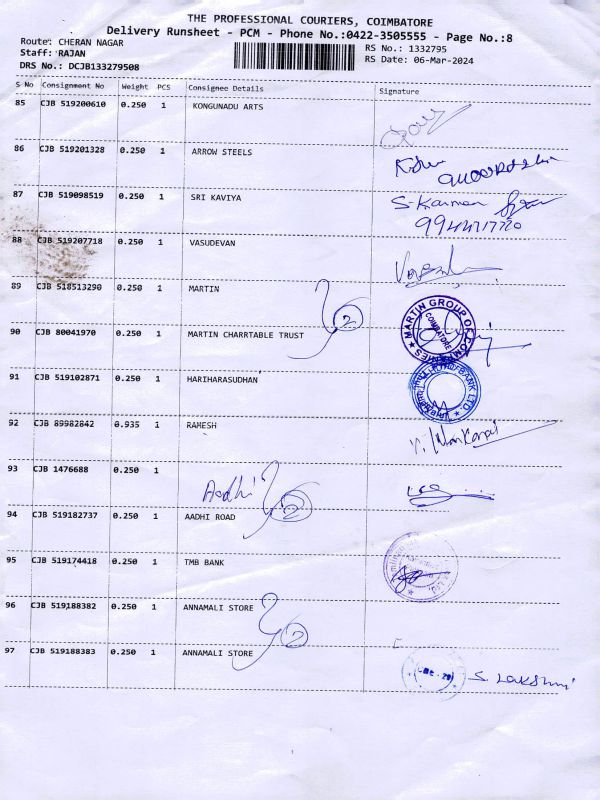 THE PROFESSIONAL COURIERS, COIMBATORE
Delivery Runsheet - PCM - Phone No.:0422-3505555 - Page No.:8
Route: CHERAN NAGAR
RS No.: 1332795
Staff: RAJAN
RS Date: 06-Mar-2024
DRS No.: DCJB133279508
S No Consignment No Weight PCS Consignee Details Signature
85 CJB 519200610 0.250 1 KONGUNADU ARTS
86 CJB 519201328 0.250 1 ARROW STEELS
87 CJB 519098519 0.250 1 SRI KAVIYA
88 CJB 519207718 0.250 1 VASUDEVAN
89 CJB 518513290 0.250 1 MARTIN
2
MARTIN GROUP OF COMPANIES
COIMBATORE
90 CJB 80041970 0.250 1 MARTIN CHARRTABLE TRUST
91 CJB 519102871 0.250 1 HARIHARASUDHAN
BANK LTD
92 CJB 89982842 0.935 1 RAMESH
93 CJB 1476688 0.250 1
Aadhi 2
94 CJB 519182737 0.250 1 AADHI ROAD
95 CJB 519174418 0.250 1 TMB BANK
96 CJB 519188382 0.250 1 ANNAMALI STORE
2
97 CJB 519188383 0.250 1 ANNAMALI STORE
S. Lakshmi